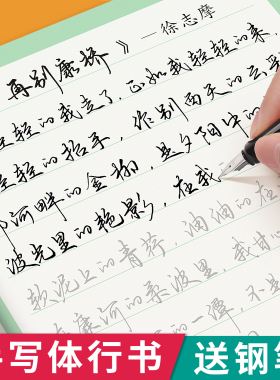 再别康桥》—徐志摩
轻轻的我走了,正如我轻轻的来,
轻轻的招手,作别西天的云
河畔的金柳,是夕阳中的
波光里的艳影,在我
软泥上的青荇,油油的在
康河的柔波里,我甘心
的一潭,不是
手写体行书 送钢笔